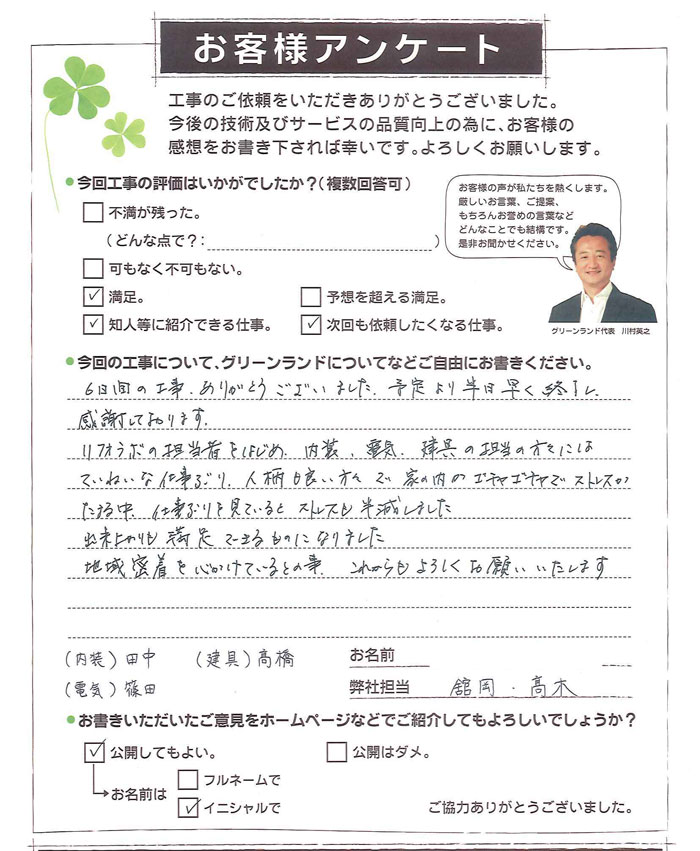 お客様アンケート
工事のご依頼をいただきありがとうございました。
今後の技術及びサービスの品質向上の為に、お客様の
感想をお書き下されば幸いです。よろしくお願いします。
●今回工事の評価はいかがでしたか?(複数回答可)
お客様の声が私たちを熱くします。
厳しいお言葉、ご提案、
もちろんお誉めの言葉など
どんなことでも結構です。
是非お聞かせください。
グリーンランド代表 川村英之
□不満が残った。
(どんな点で?: )
□可もなく不可もない。
☑満足。 □予想を超える満足。
☑知人等に紹介できる仕事。 ☑次回も依頼したくなる仕事。
●今回の工事について、グリーンランドについてなどご自由にお書きください。
6日間の工事、ありがとうございました。予定より半日早く終了し、
感謝しております。
リフォラボの担当者をはじめ、内装、電気、建具の担当の方々には
ていねいな仕事ぶり、人柄も良い方々で家の内のゴチャゴチャでストレスが
たまる中、仕事ぶりを見ているとストレスも半減しました
出来上がりも満足できるものになりました
地域密着を心がけているとの事、これからもよろしくお願いいたします
(内装)田中 (建具)高橋 お名前
(電気)篠田 弊社担当 舘岡・高木
●お書きいただいたご意見をホームページなどでご紹介してもよろしいでしょうか?
☑公開してもよい。 □公開はダメ。
→お名前は □フルネームで
☑イニシャルで ご協力ありがとうございました。